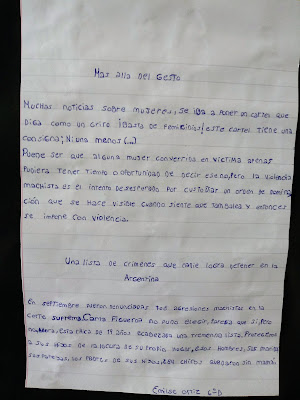 Mas alla Del Gesto
Muchas noticias sobre mujeres, se iba a poner un cartel que
Diga como un Grito ¡Basta de Femicidios! este cartel tiene una
consigna; Ni una menos (...)
Puede ser que alguna mujer convertida en victima apenas
Pudiera tener tiempo o oportunidad de decir eso, pero la violencia
machista es el intento desesperado por custodiar un orden de domina
ción que se hace visible cuando siente que tambalea y entonces
se impone con violencia.
Una lista de crimenes que nadie logra detener en la
Argentina
En septiembre fueron denunciadas 708 agresiones machistas en la
corte suprema. Carla Figueroa no pudo elegir, parecia que si, pero
no. Esta chica de 19 años encabezaba una tremenda lista, Protegieron
a sus hijos de la locura de su propio hogar, esos hombres, sus maridos
sus parejas, los padres de sus hijos, chicos quedaron sin mamá
Enrique Ortiz 6ºD